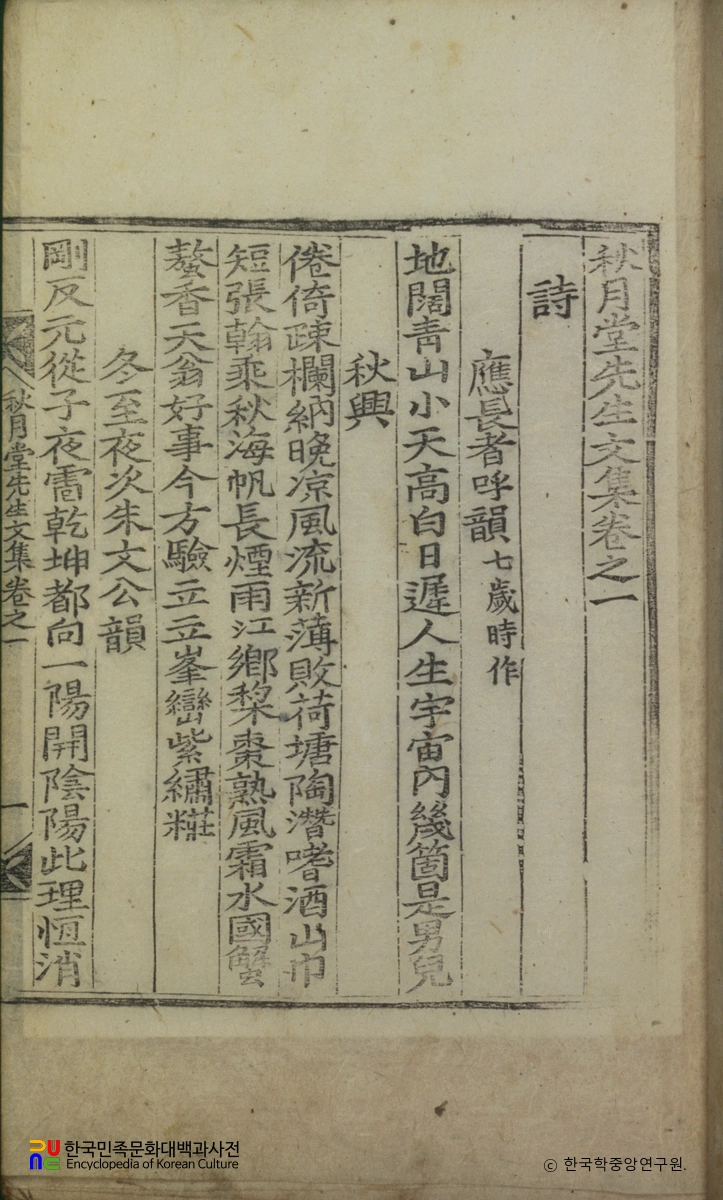 秋月堂先生文集卷之一
詩
應長者呼韻 七歲時作
地闊靑山小天高白日遲人生宇宙內幾箇是男兒
秋興
倦倚踈欄納晚凉風流新薄敗荷塘陶潛嗜酒山巾
短張翰乘秋海帆長煙雨江鄕棃棗熟風霜水國蟹
螯香天翁好事今方驗立立峯巒紫繡糚
冬至夜次朱文公韻
剛反元從子夜雷乾坤都向一陽開陰陽此理恒消
秋月堂先生文集 卷之一
一
한국민족문화대백과사전
Encyclopedia of Korean Culture
ⓒ 한국학중앙연구원.